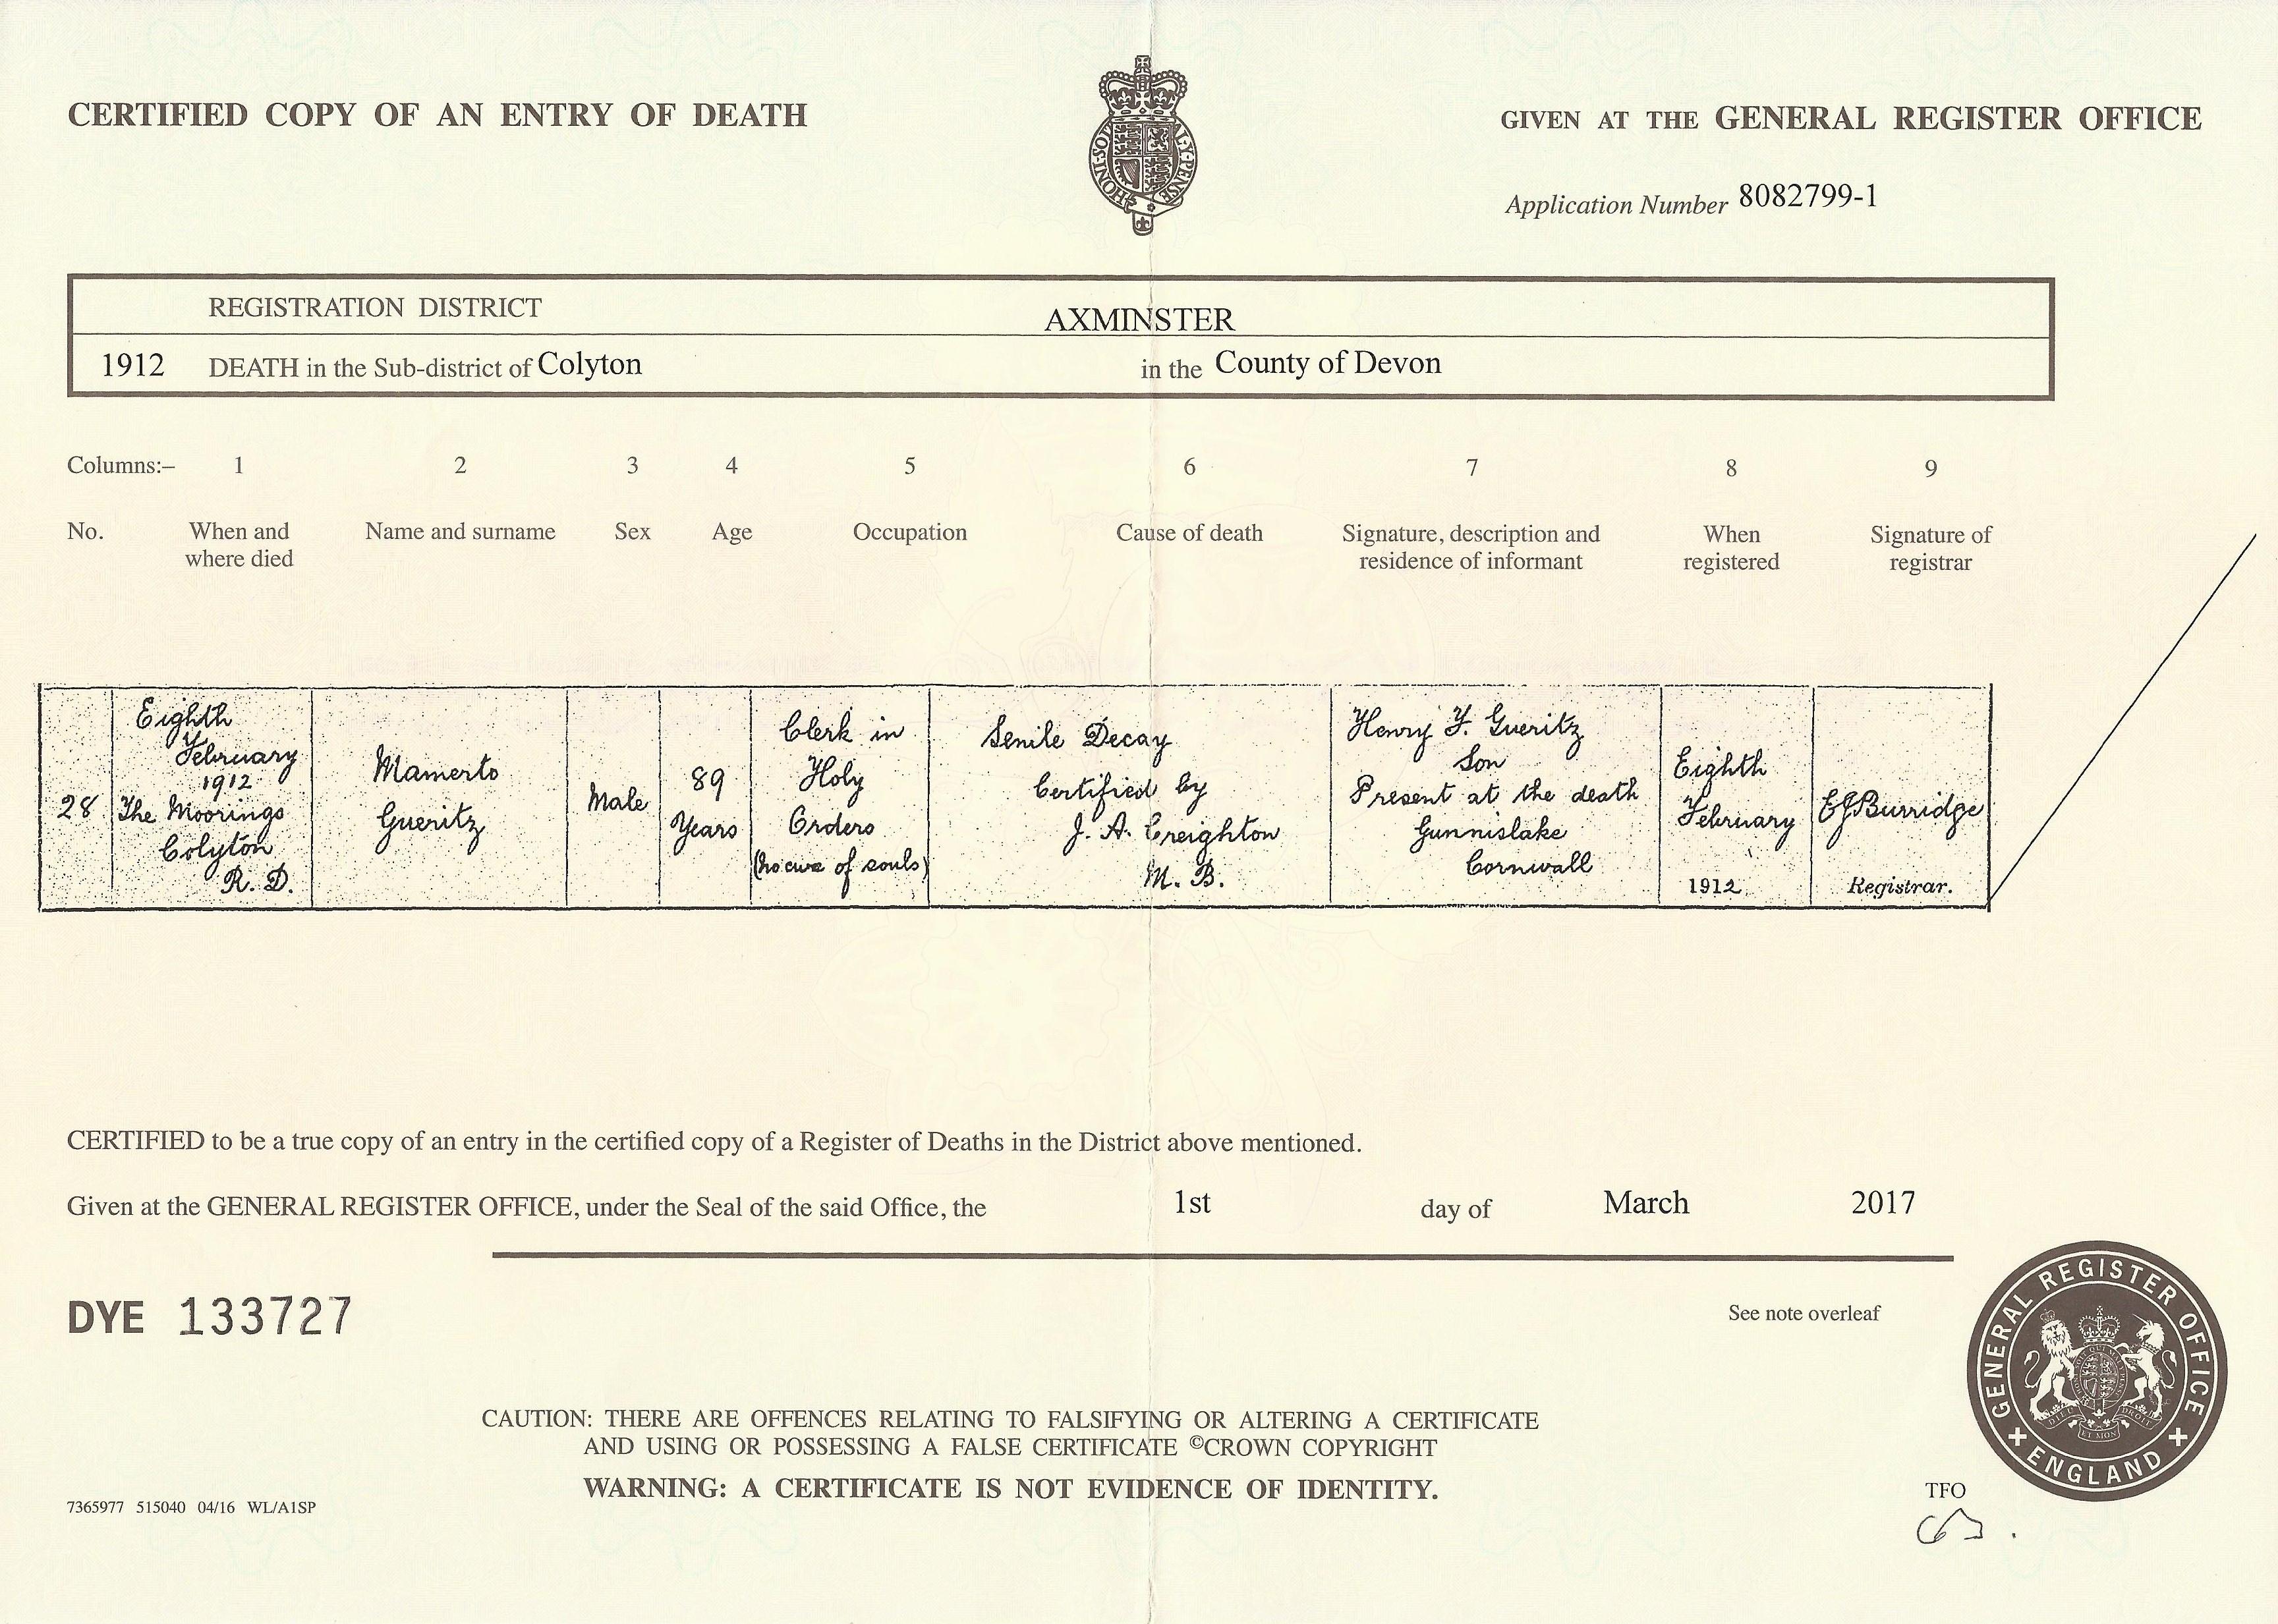 CERTIFIED COPY OF AN ENTRY OF DEATH
GIVEN AT THE GENERAL REGISTER OFFICE
HONI·SOI AL·Y·PENSE
Application Number 8082799-1
REGISTRATION DISTRICT AXMINSTER
1912 DEATH in the Sub-district of Colyton in the County of Devon
Columns:– 1 2 3 4 5 6 7 8 9
No. When and where died Name and surname Sex Age Occupation Cause of death Signature, description and residence of informant When registered Signature of registrar
28
Eighth
February
1912
The Moorings
Colyton
R. D.
Mamerto
Gueritz
Male
89
Years
Clerk in
Holy
Orders
(no cure of souls)
Senile Decay
Certified by
J. A. Creighton
M. B.
Henry F. Gueritz
Son
Present at the death
Gunnislake
Cornwall
Eighth
February
1912
EJBurridge
Registrar.
CERTIFIED to be a true copy of an entry in the certified copy of a Register of Deaths in the District above mentioned.
Given at the GENERAL REGISTER OFFICE, under the Seal of the said Office, the 1st day of March 2017
DYE 133727
See note overleaf
GENERAL REGISTER OFFICE
ENGLAND
CAUTION: THERE ARE OFFENCES RELATING TO FALSIFYING OR ALTERING A CERTIFICATE
AND USING OR POSSESSING A FALSE CERTIFICATE ©CROWN COPYRIGHT
WARNING: A CERTIFICATE IS NOT EVIDENCE OF IDENTITY.
7365977 515040 04/16 WL/A1SP
TFO